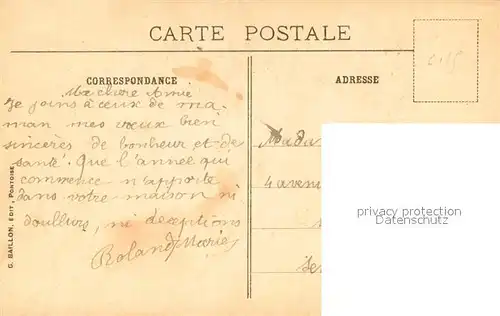 CARTE POSTALE
CORRESPONDANCE
Ma chere Amie
Je joins à ceux de ma-
man mes vœux bien
sincères de bonheur et de
santé. Que l'année qui
commence n'apporte
dans votre maison ni
douleurs, ni deceptions
Roland Marie
G. BAILLON, EDIT., PONTOISE
ADRESSE
Mada
4 aven
privacy protection
Datenschutz